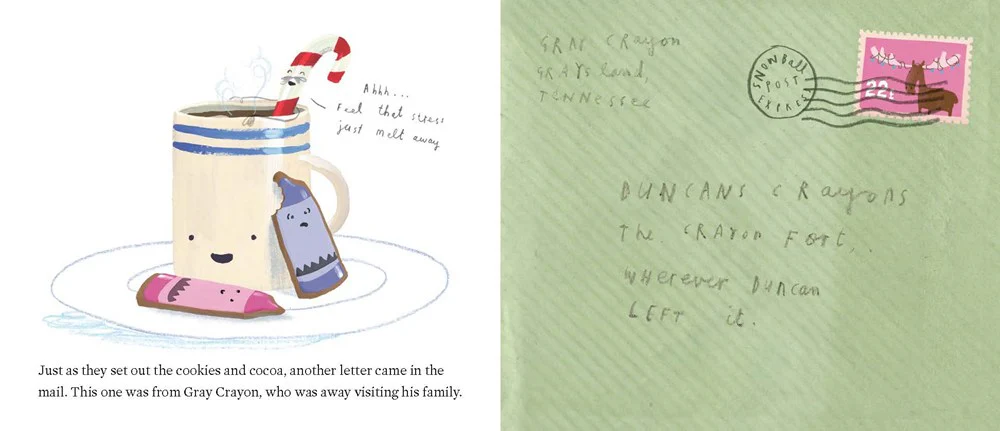 Ahhh...
Feel that stress
just melt away
Just as they set out the cookies and cocoa, another letter came in the
mail. This one was from Gray Crayon, who was away visiting his family.
GRAY CRayon
GRAYSland,
TENNessee
SNOWBall
POST
EXPRESS
22¢
DUNCANS CRayons
The CRAYon FoRt,
WHerever DUNcan
LEFT it.